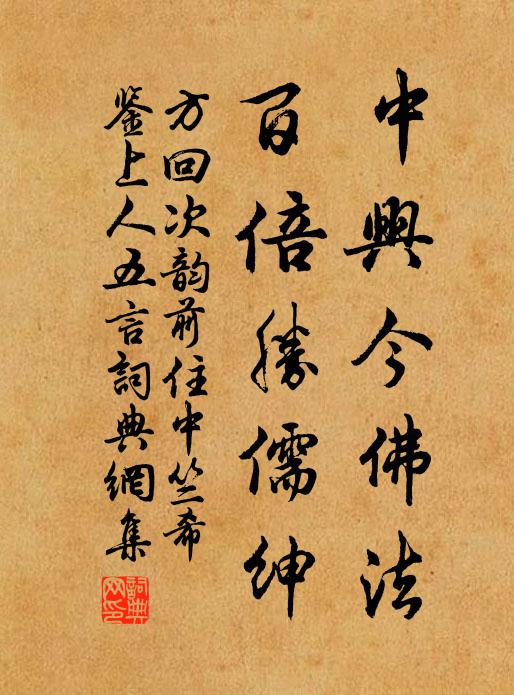 中興今佛法
百倍勝儒紳
方回次韵前住中竺希
鉴上人五言詞典網集
詞典網印